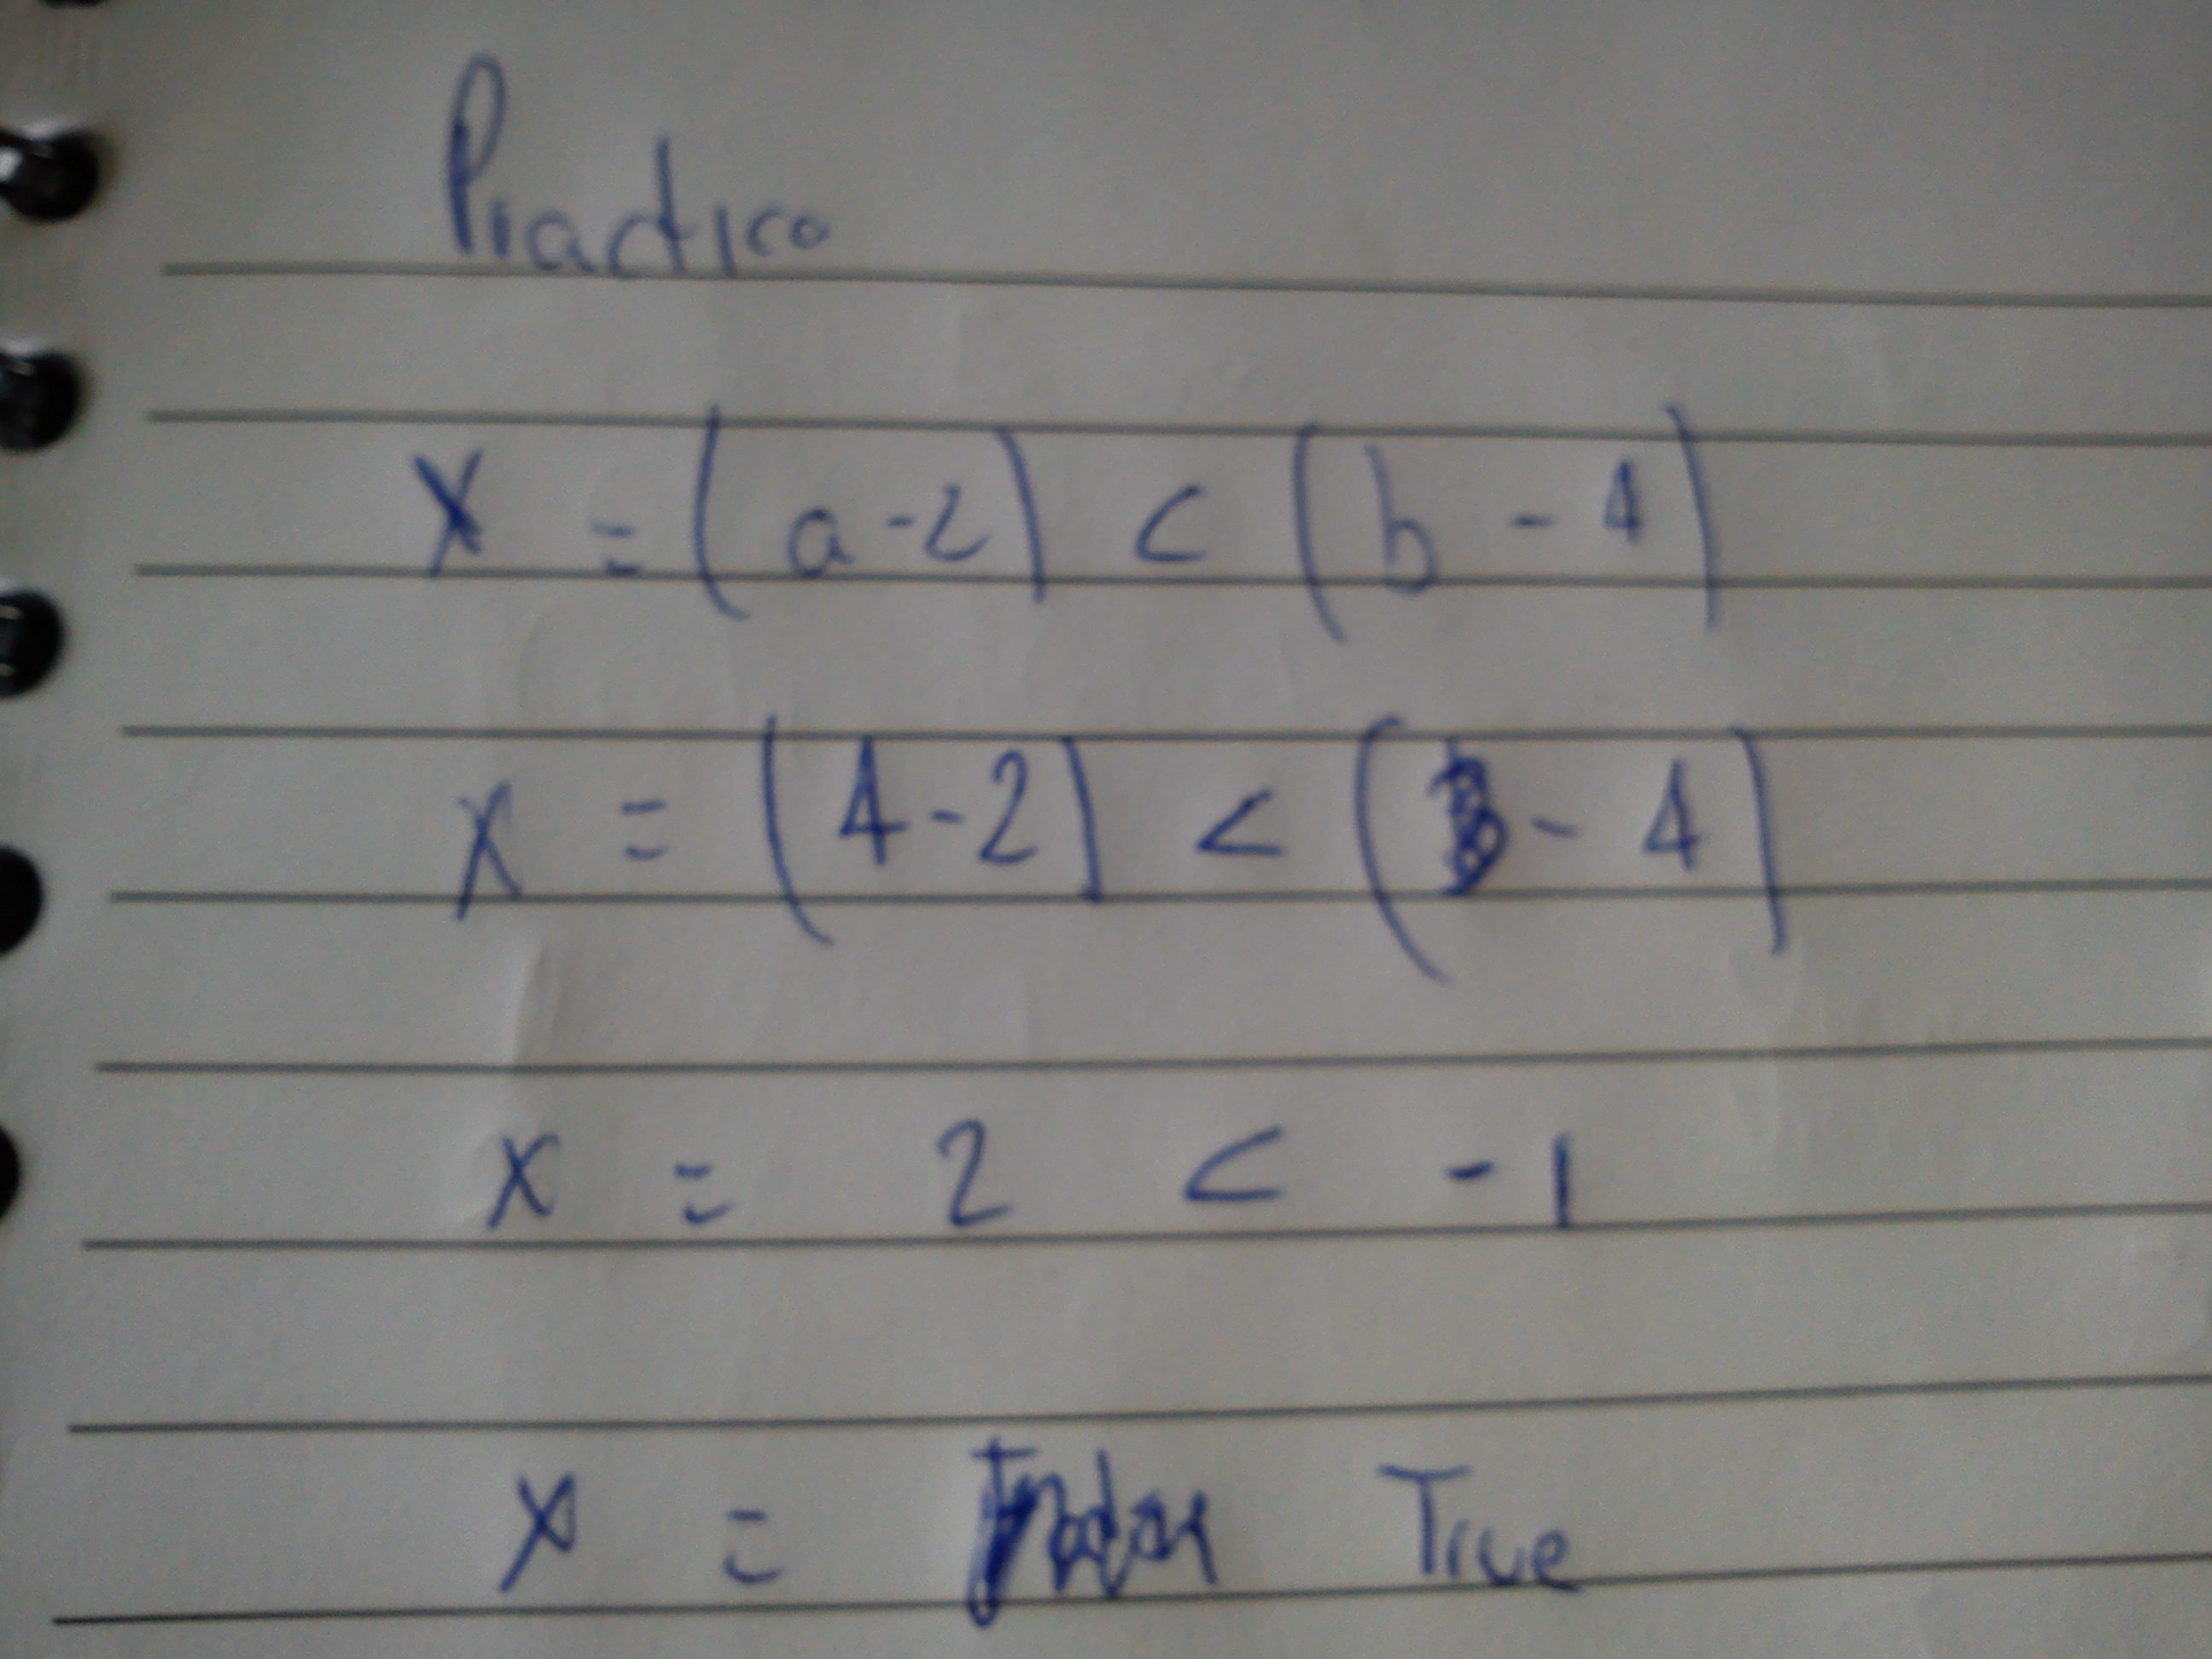 Practica
x = (a - 2) < (b - 4)
x = (4 - 2) < (3 - 4)
x = 2 < -1
x = True